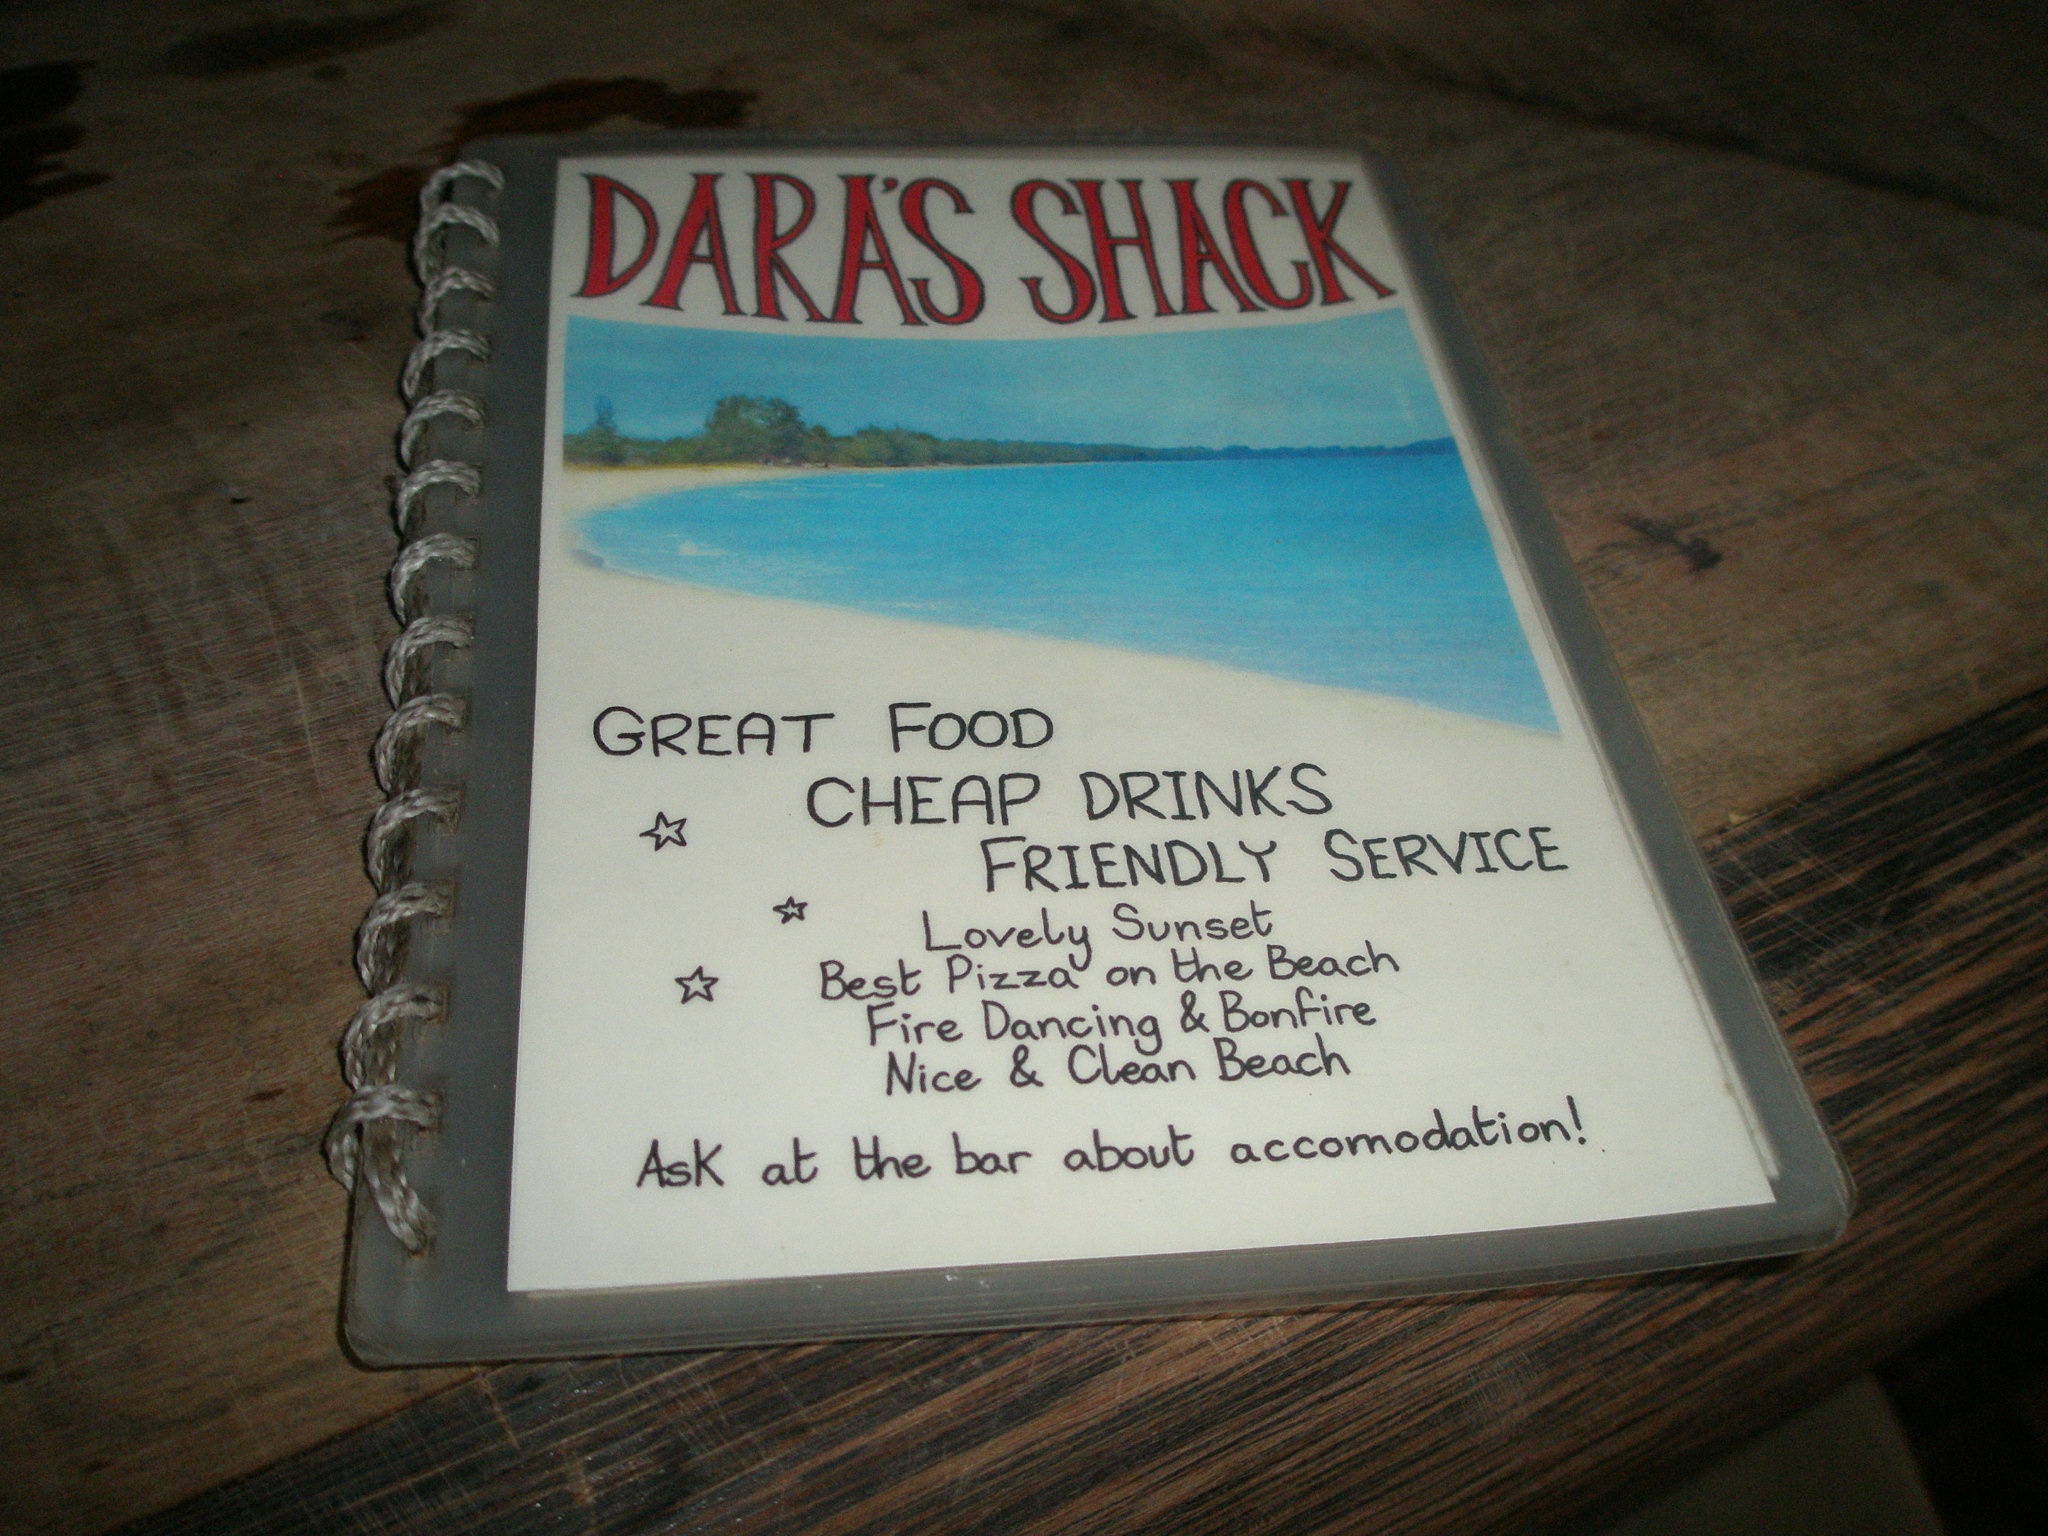 DARA'S SHACK
GREAT FOOD
CHEAP DRINKS
FRIENDLY SERVICE
Lovely Sunset
Best Pizza on the Beach
Fire Dancing & Bonfire
Nice & Clean Beach
Ask at the bar about accomodation!